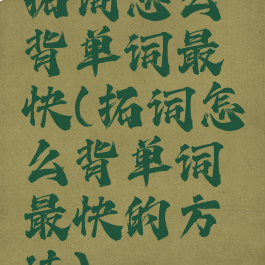 拓词怎么
背单词最
快(拓词怎
么背单词
最快的方
法)